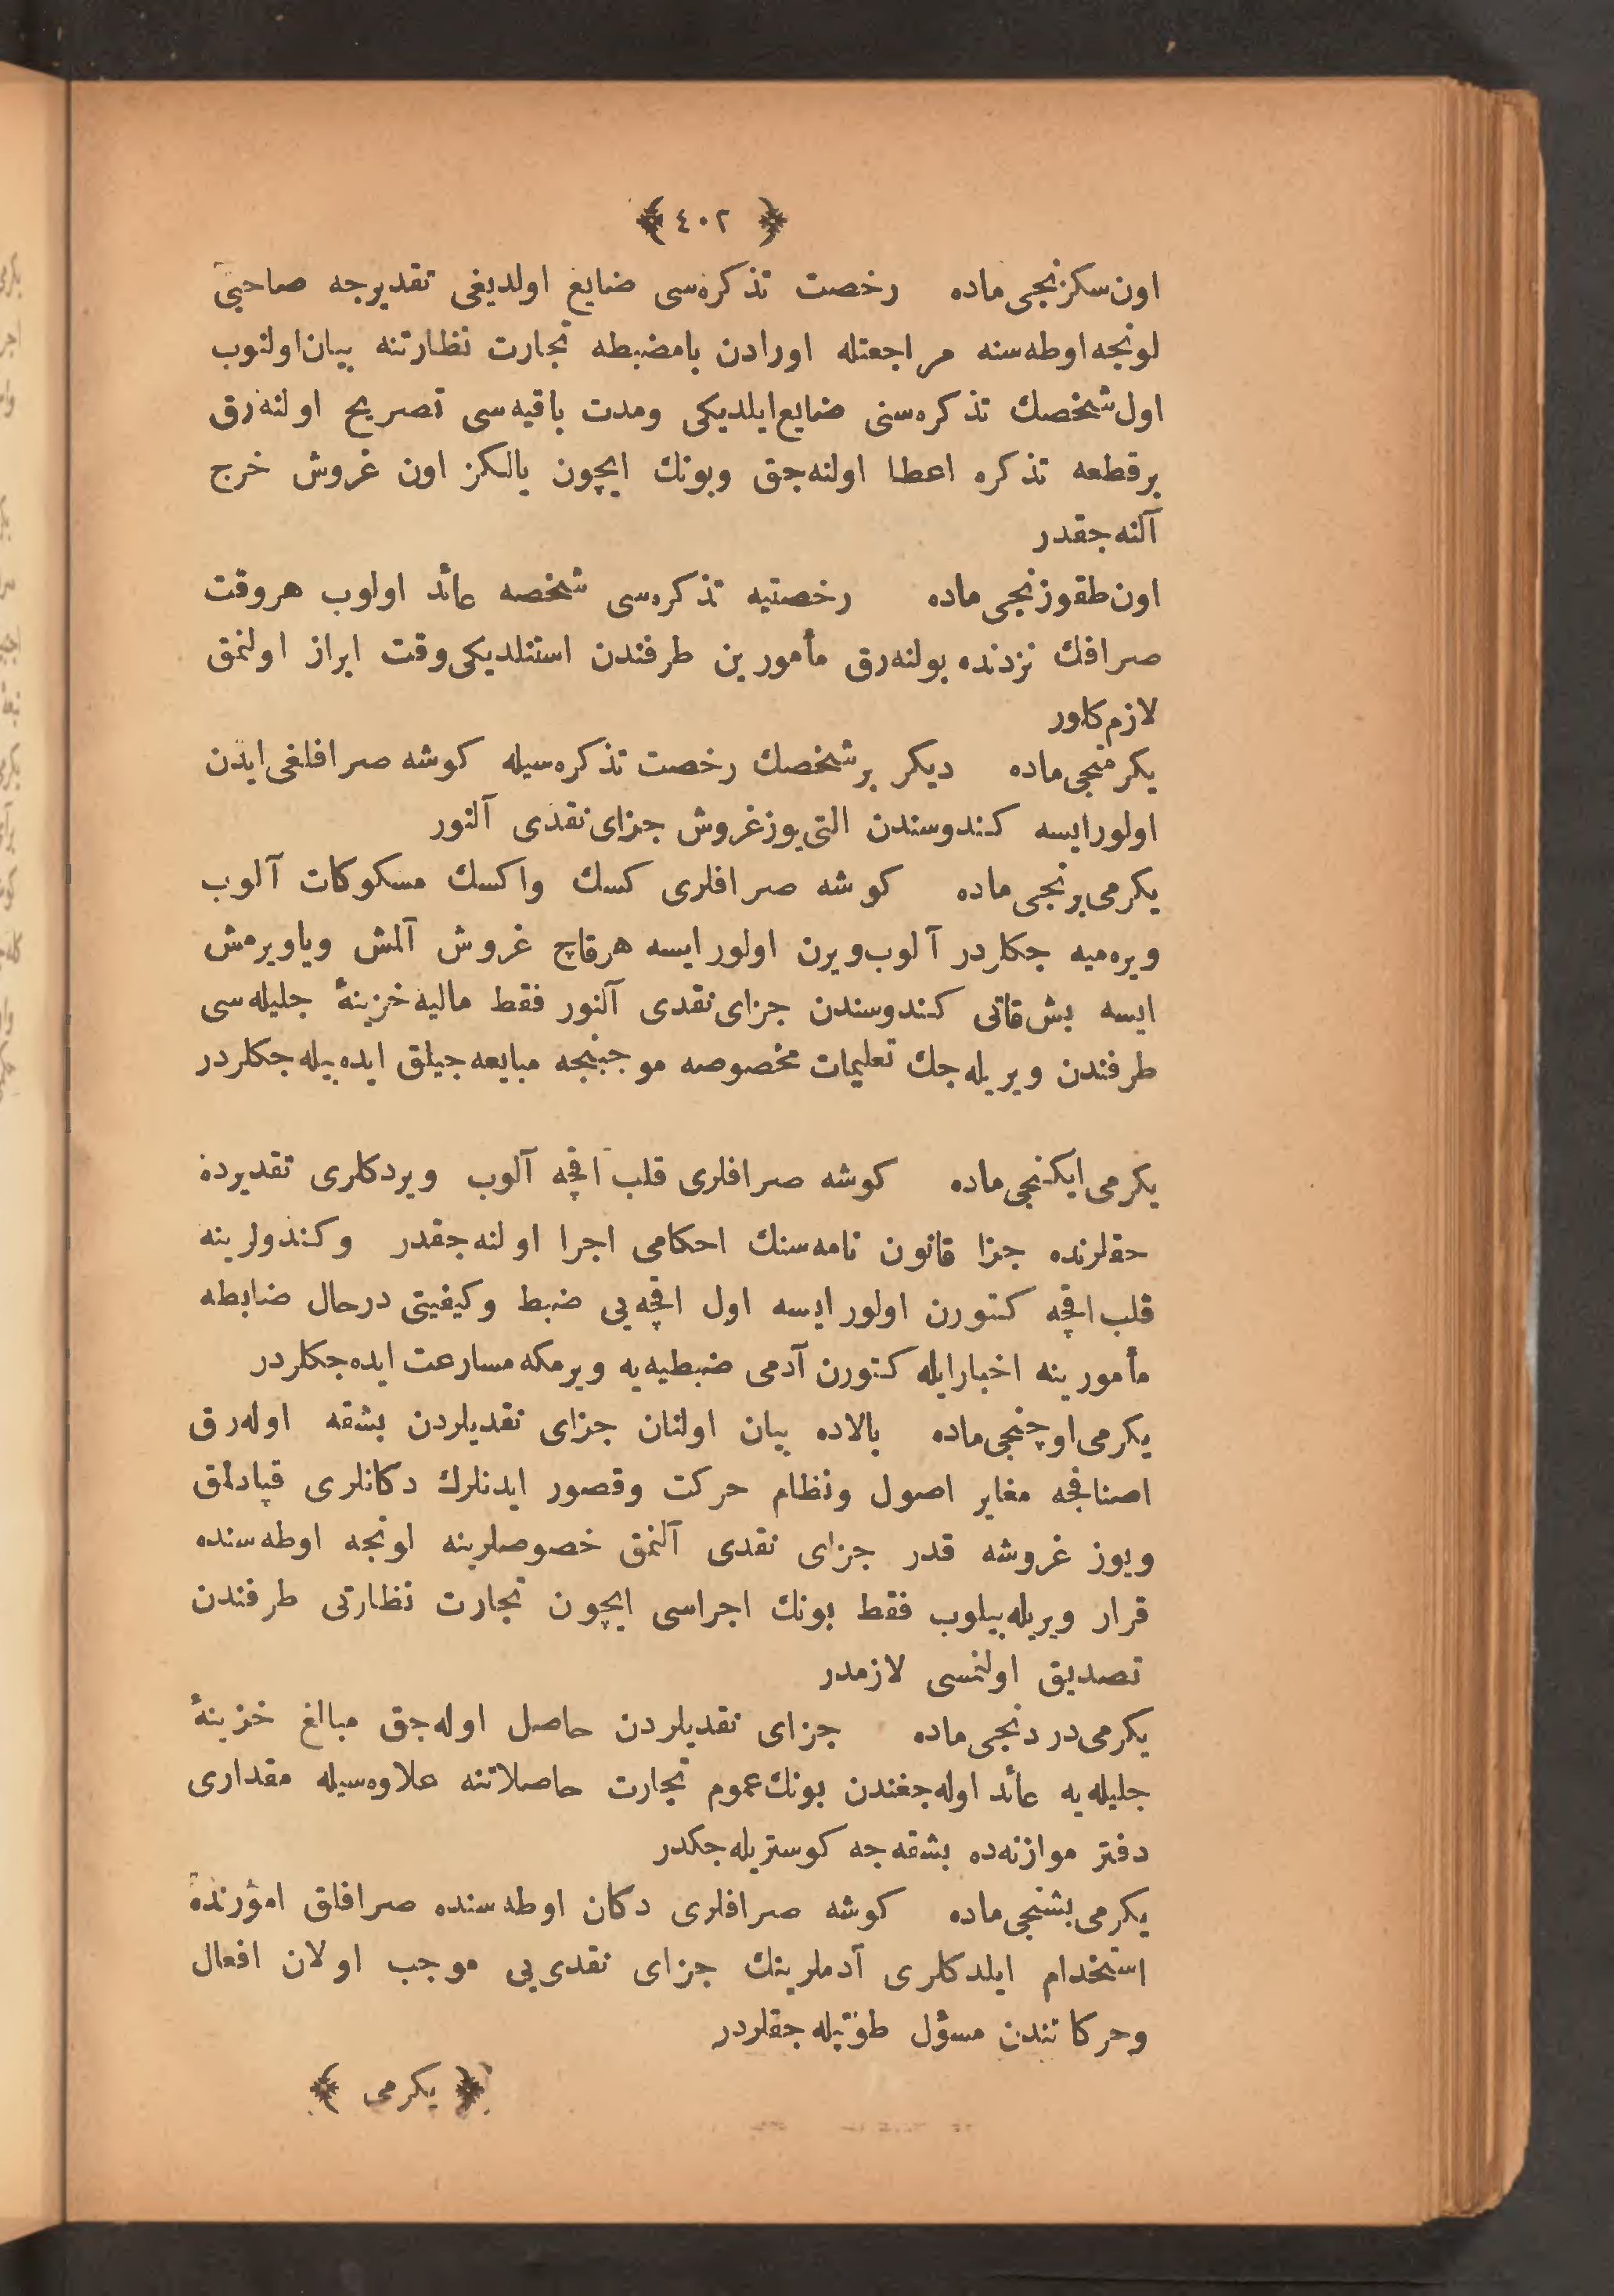 ﴿ ٤٠٢ ﴾
اون سكزنجی ماده رخصت تذكره‌سی ضایع اولدیغی تقدیرجه صاحبی
لونجه اوطه‌سنه مراجعتله اورادن بامضبطه تجارت نظارتنه بیان اولنوب
اول شخصك تذكره‌سنی ضایع ایلدیكی ومدت باقیه‌سی تصریح اولنه‌رق
برقطعه تذكره اعطا اولنه‌جق وبونك ایچون یالكز اون غروش خرج
آلنه‌جقدر
اون طقوزنجی ماده رخصتیه تذكره‌سی شخصه عائد اولوب هروقت
صرافك نزدنده بولنه‌رق مأمورین طرفندن استنلدیكی وقت ابراز اولنمق
لازم كلور
یكرمنجی ماده دیكر برشخصك رخصت تذكره‌سیله كوشه صرافلغی ایدن
اولورایسه كندوسندن التی یوزغروش جزای نقدی آلنور
یكرمی برنجی ماده كوشه صرافلری كسك واكسك مسكوكات آلوب
ویره‌میه جكلردر آلوب ویرن اولورایسه هرقاچ غروش آلمش ویاویرمش
ایسه بش قاتی كندوسندن جزای نقدی آلنور فقط مالیه خزینهٔ جلیله‌سی
طرفندن ویریله‌جك تعلیمات مخصوصه موجبنجه مبایعه‌جیلق ایده‌بیله‌جكلردر
یكرمی ایكنجی ماده كوشه صرافلری قلب اقچه آلوب ویردكلری تقدیرده
حقلرنده جزا قانون نامه‌سنك احكامی اجرا اولنه‌جقدر وكندولرینه
قلب اقچه كتورن اولورایسه اول اقچه‌یی ضبط وكیفیتی درحال ضابطه
مأمورینه اخبارایله كتورن آدمی ضبطیه‌یه ویرمكه مسارعت ایده‌جكلردر
یكرمی اوچنجی ماده بالاده بیان اولنان جزای نقدیلردن بشقه اوله‌رق
اصنافجه مغایر اصول ونظام حركت وقصور ایدنلرك دكانلری قپادلمق
ویوز غروشه قدر جزای نقدی آلنمق خصوصلرینه لونجه اوطه‌سنده
قرار ویریله‌بیلوب فقط بونك اجراسی ایچون تجارت نظارتی طرفندن
تصدیق اولنمسی لازمدر
یكرمی دردنجی ماده جزای نقدیلردن حاصل اوله‌جق مبالغ خزینهٔ
جلیله‌یه عائد اوله‌جغندن بونك عموم تجارت حاصلاتنه علاوه‌سیله مقداری
دفتر موازنه‌ده بشقه‌جه كوستریله‌جكدر
یكرمی بشنجی ماده كوشه صرافلری دكان اوطه‌سنده صرافلق امورنده
استخدام ایلدكلری آدملرینك جزای نقدی‌یی موجب اولان افعال
وحركاتندن مسؤل طوتیله‌جقلردر
﴿ یكرمی ﴾